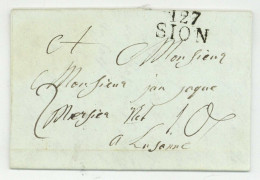 127
SION
Monsieur
Monsieur jan jaque
Mersier
10
a Lusanne